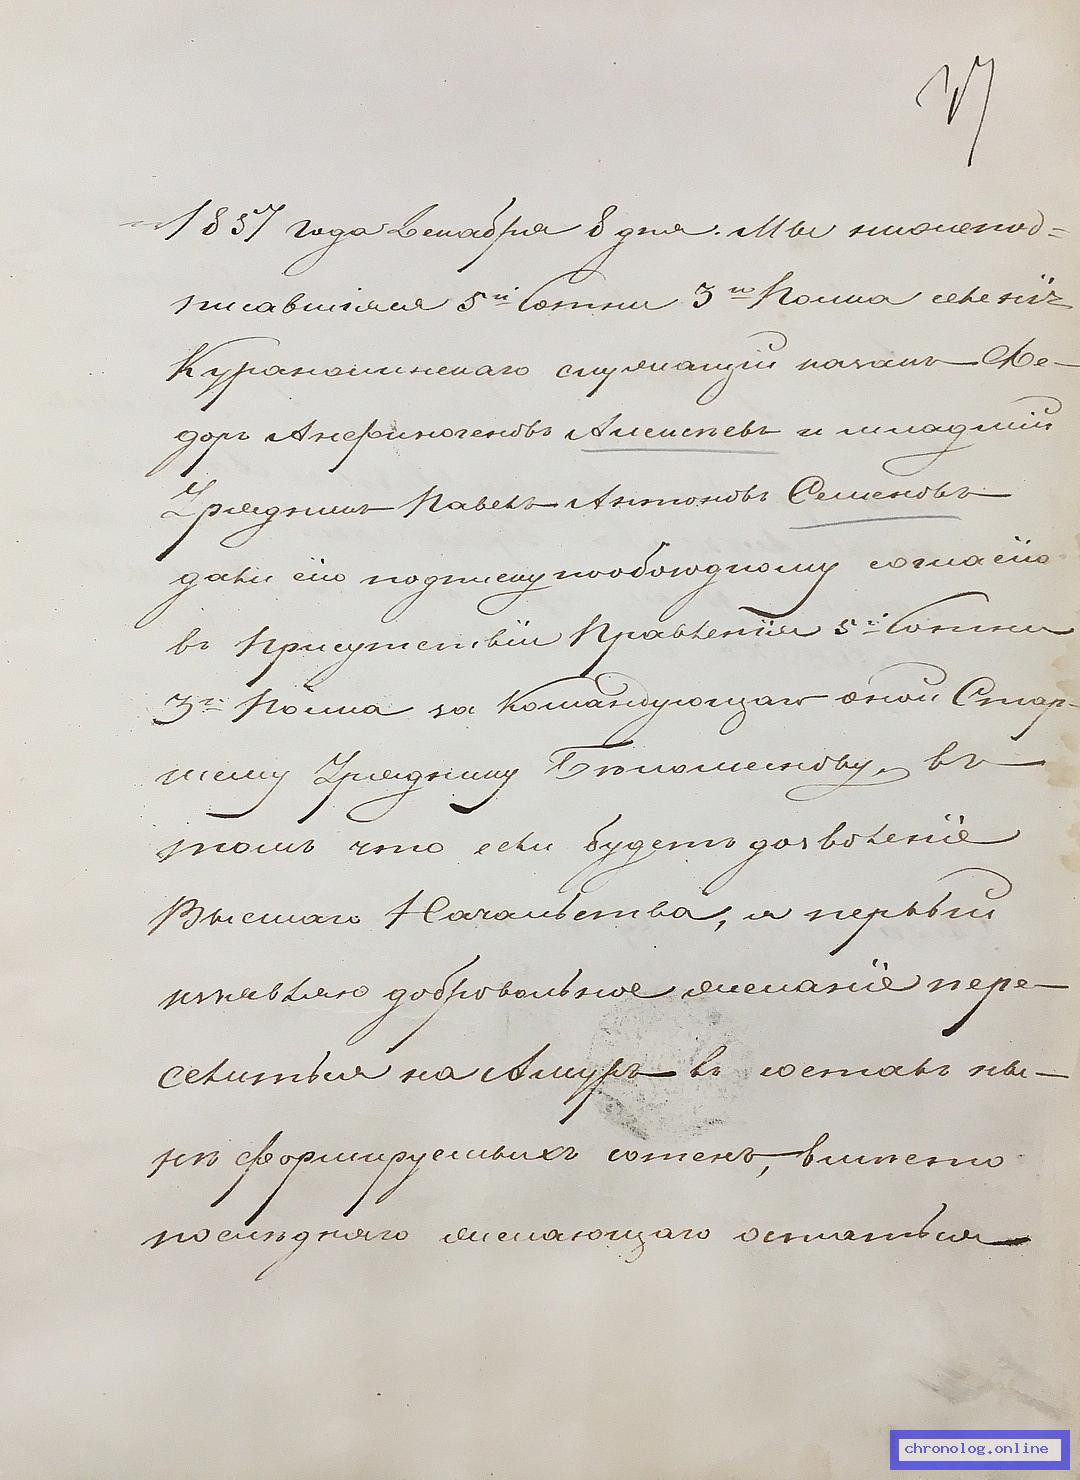 37
1857 года Декабря 8 дня. Мы нижепод=
писавшіяся 5й Сотни 3го Полка селенія
Куранжинскаго служащій казакъ Фе-
доръ Анфиногеновъ Алексѣевъ и младшій
Урядникъ Павелъ Антоновъ Семеновъ
дали сію подписку пообоюдному согласію
въ Присутствіи Правленія 5й Сотни
3го Полка за Командующаго оной Стар-
шему Уряднику Бѣломѣснову, въ
томъ что если будетъ дозволеніе
Высшаго Начальства, я первый
изъявляю добровольное желаніе пере-
селиться на Амуръ въ составъ ны-
нѣ формируемыхъ сотенъ, вмѣсто
послѣдняго желающаго остаться
chronolog.online